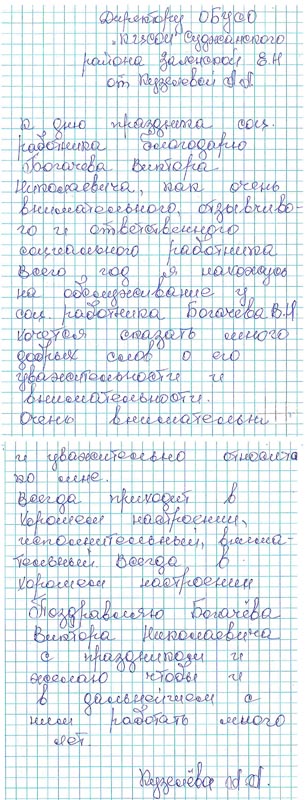 Директору ОБУСО
"КЦСОН Суджанского
района Заленской Е.Н
от Кузелёвой А.А.
К дню праздника соц.
работника благодарю
Богачёва Виктора
Николаевича, как очень
внимательного, отзывчиво-
го и ответственного
социального работника
Всего год я нахожусь
на обслуживание у
соц. работника Богачева В.Н
хочется сказать много
добрых слов о его
уважительности и
внимательности.
Очень внимательны
и уважительно относится
ко мне.
Всегда приходит в
хорошем настроении,
исполнительный, внима-
тельный. Всегда в
хорошем настроении
Поздравляю Богачёва
Виктора Николаевича
с праздником и
желаю чтобы и
в дальнейшем с
ним работать много
лет.
Кузелёва А.А.